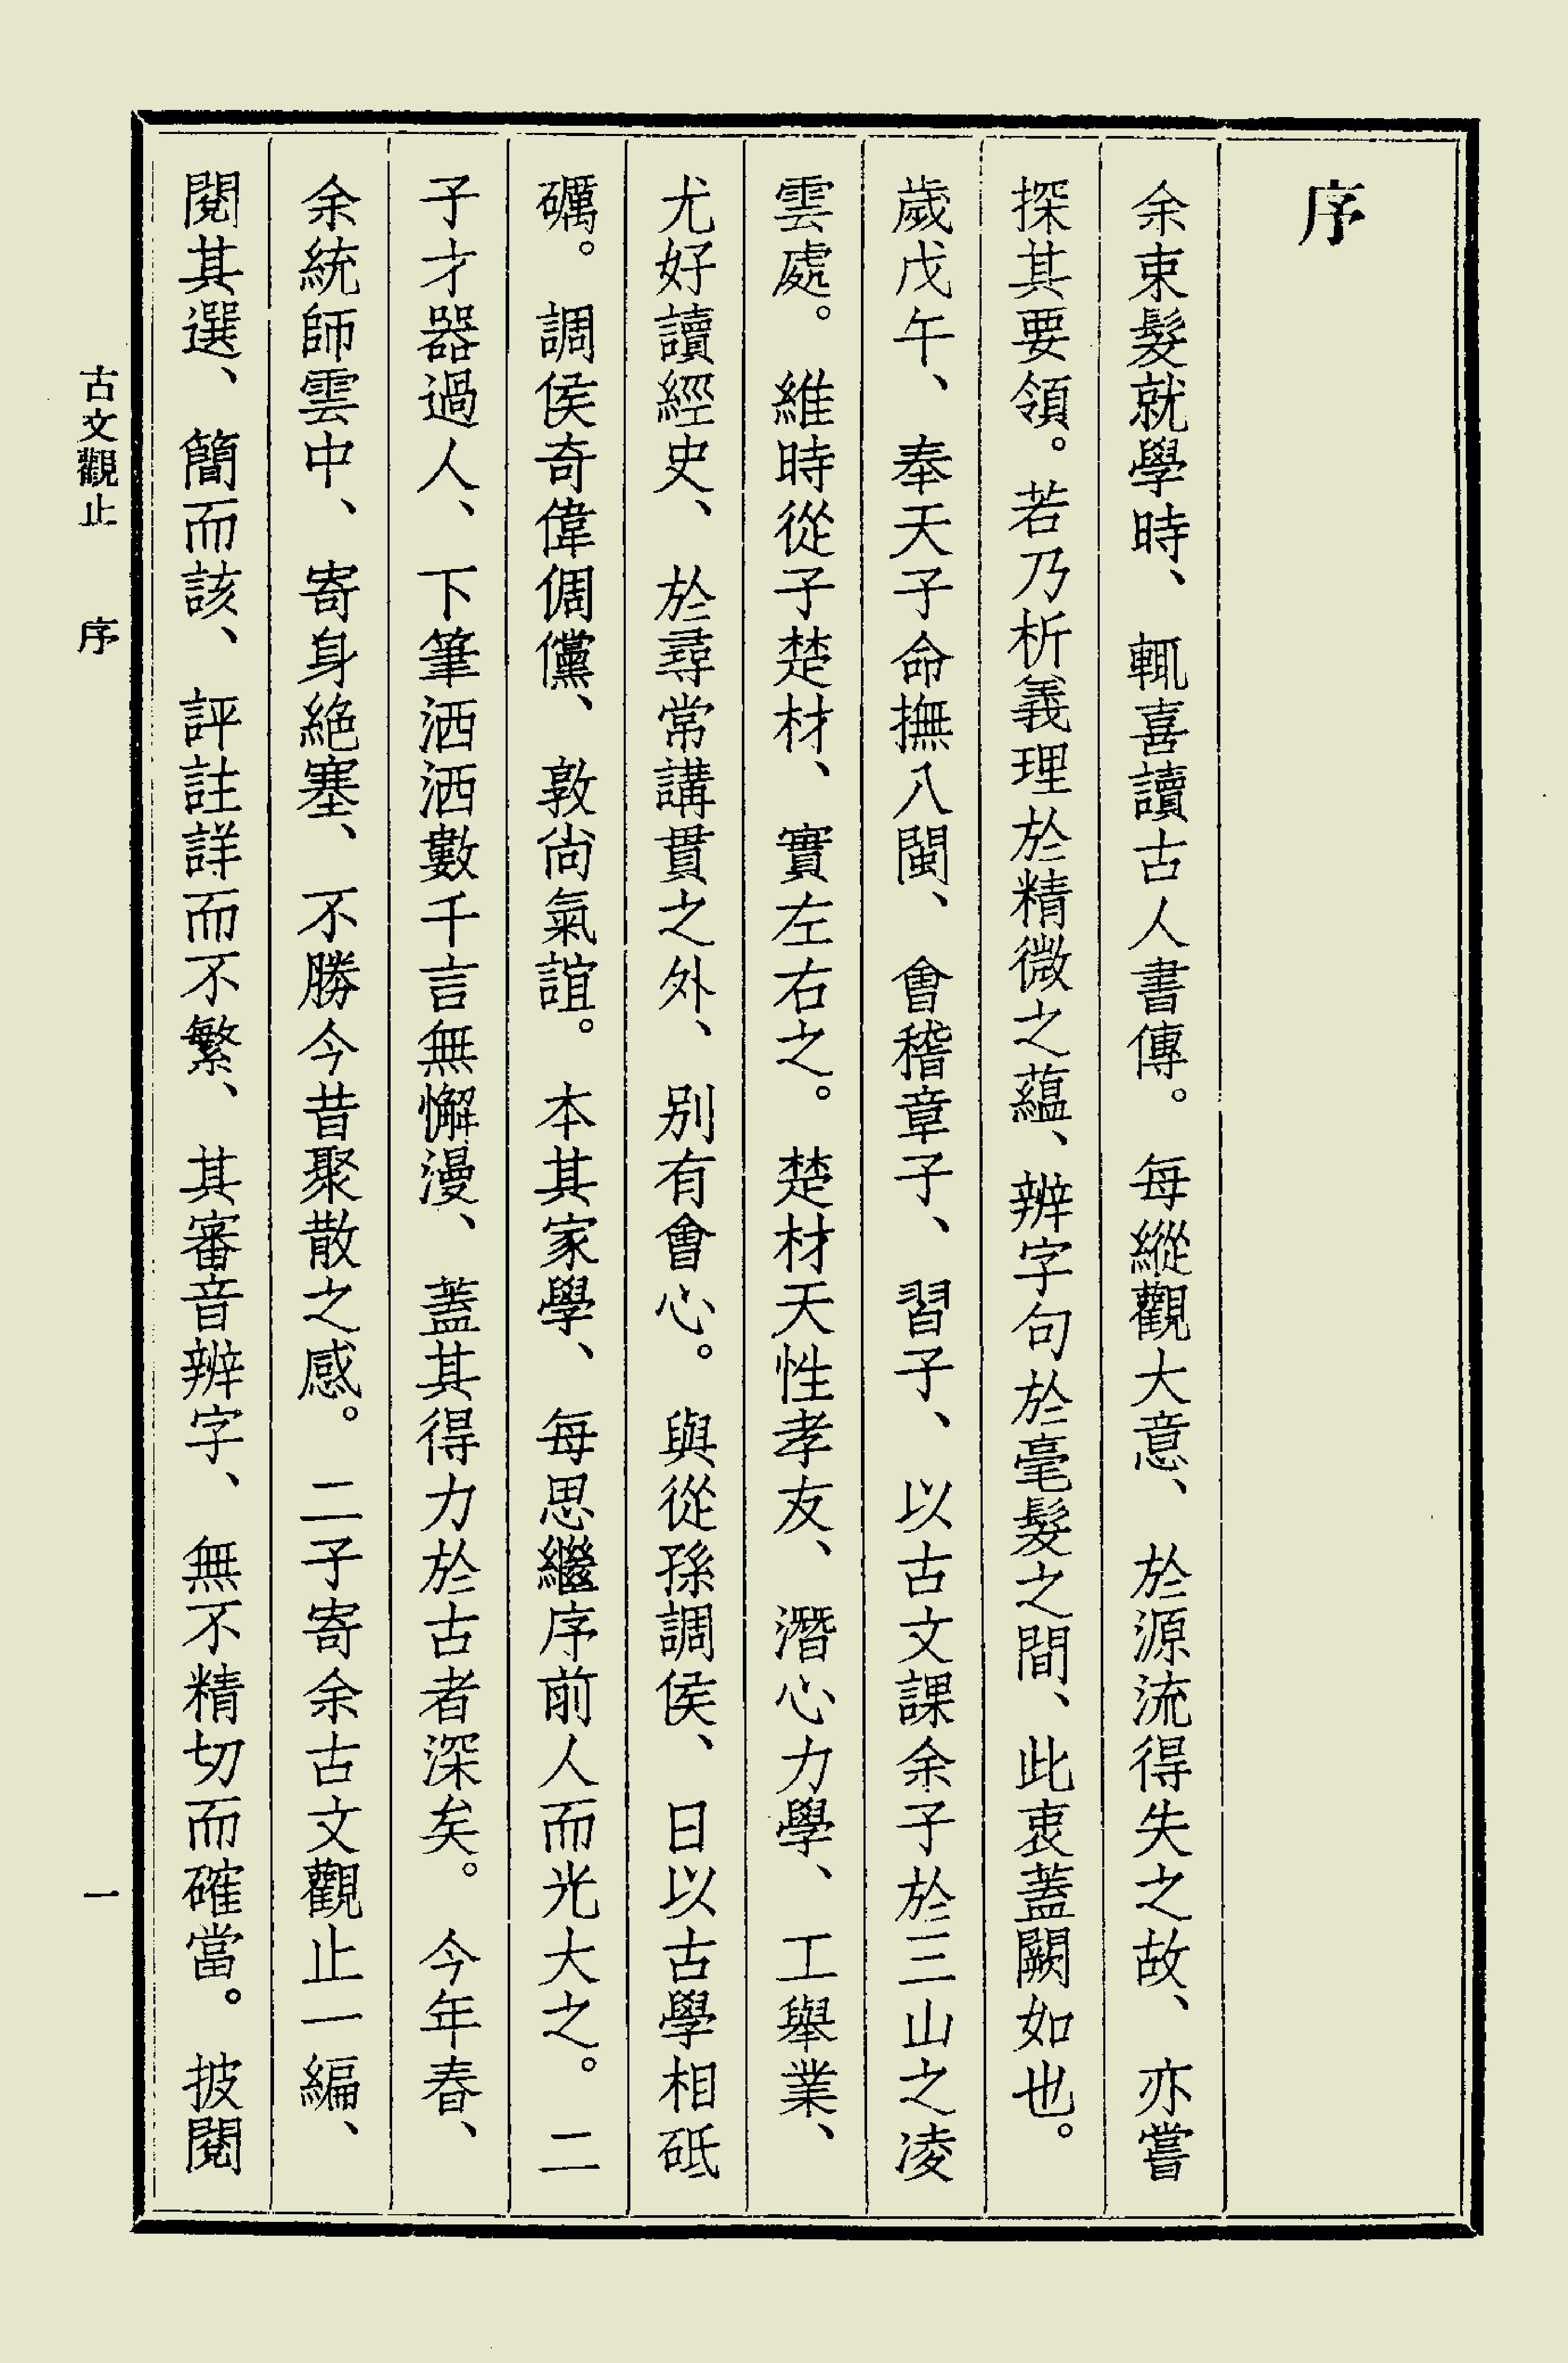 序
余束髮就學時、輒喜讀古人書傳。每縱觀大意、於源流得失之故、亦嘗
探其要領。若乃析義理於精微之蘊、辨字句於毫髮之間、此衷蓋闕如也。
歲戊午、奉天子命撫八閩、會稽章子、習子、以古文課余子於三山之凌
雲處。維時從子楚材、實左右之。楚材天性孝友、潛心力學、工舉業、
尤好讀經史、於尋常講貫之外、別有會心。與從孫調侯、日以古學相砥
礪。調侯奇偉倜儻、敦尚氣誼。本其家學、每思繼序前人而光大之。二
子才器過人、下筆洒洒數千言無懈漫、蓋其得力於古者深矣。今年春、
余統師雲中、寄身絕塞、不勝今昔聚散之感。二子寄余古文觀止一編、
閱其選、簡而該、評註詳而不繁、其審音辨字、無不精切而確當。披閱
古文觀止 序 一